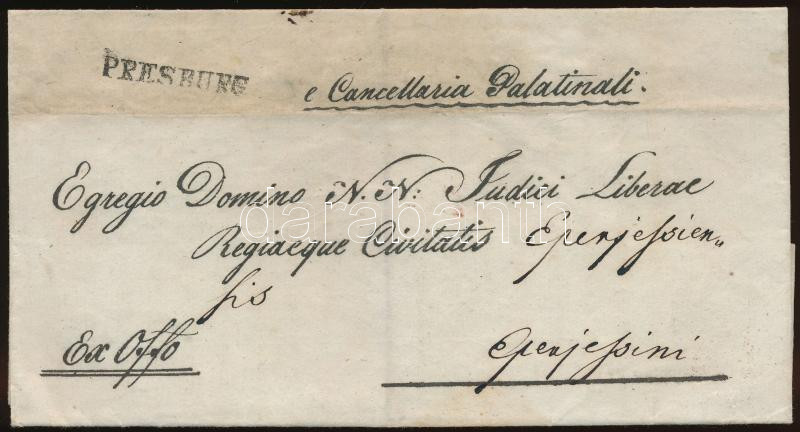 PRESBURG
e Cancellaria Palatinali.
Egregio Domino N. N: Judici Liberae
Regiaeque Civitatis Eperjessien„
sis
Ex Offo
Eperjessini
darabanth